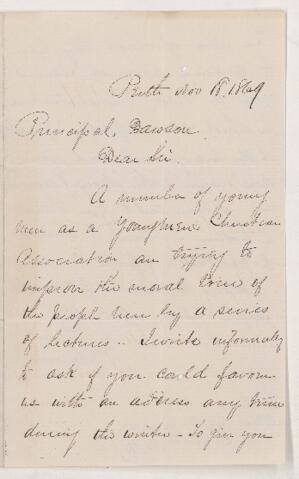 Perth Nov 18. 1869
Principal Dawson
Dear Sir.
A number of young
men as a Youngmens Christian
Association are trying to
improve the moral tone of
the people here by a series
of lectures. I write informally
to ask if you could favour
us with an address any time
during the winter - To give you